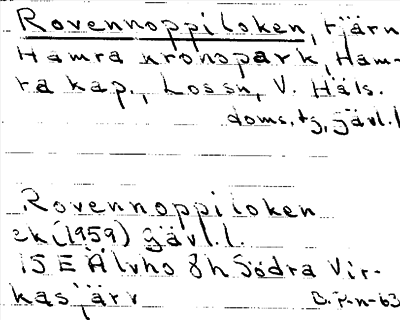 Rovennoppiloken, tjärn
Hamra kronopark, Ham-
ra kap., Lossn, V. Häls.
doms. tg, gävl.l
Rovennoppiloken
ek (1959) gävl.l.
15 E Älvho 8h Södra Vir-
kasjärv